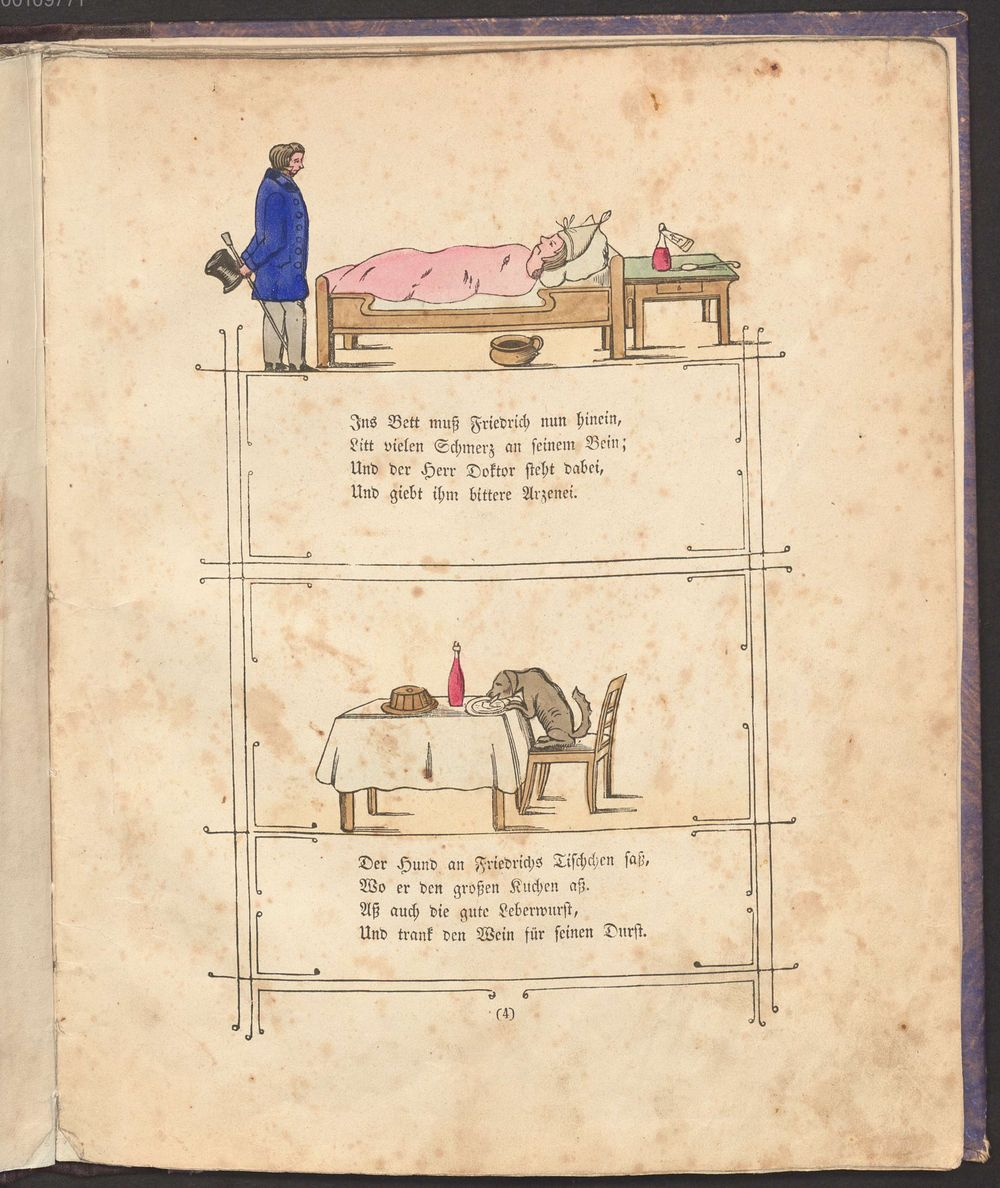 Ins Bett muß Friedrich nun hinein,
Litt vielen Schmerz an seinem Bein;
Und der Herr Doktor steht dabei,
Und giebt ihm bittere Arzenei.
Der Hund an Friedrichs Tischchen saß,
Wo er den großen Kuchen aß.
Aß auch die gute Leberwurst,
Und trank den Wein für seinen Durst.
(4)